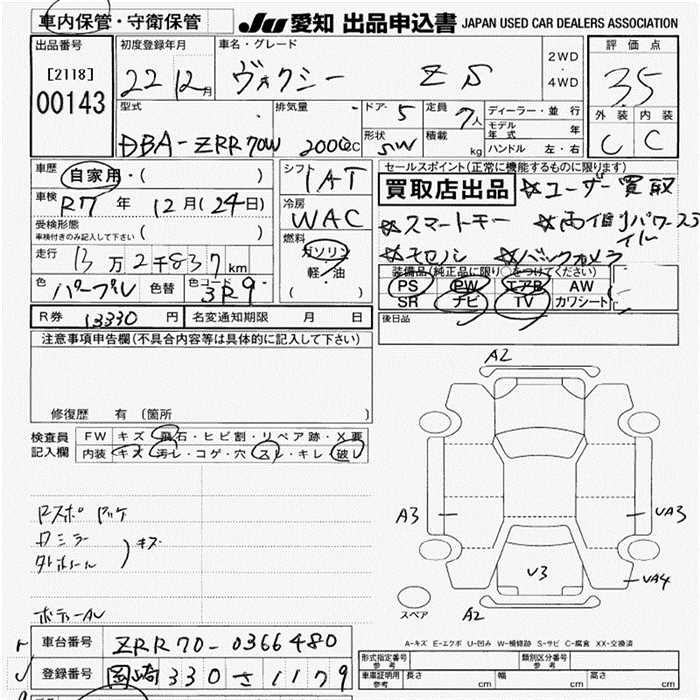 車内保管・守衛保管 JU 愛知 出品申込書 JAPAN USED CAR DEALERS ASSOCIATION
出品番号 初度登録年月 車名・グレード 評価点
[2118] 22 12月 ヴォクシー ZS 2WD ・ 4WD 3.5
00143
型式 排気量 ドア・ 5 定員 7人 ディーラー・並行 外装 内装
モデル年式 年
DBA-ZRR70W 2000cc 形状 SW 積載 kg ハンドル 左・右 C C
車歴 自家用・( ) シフト IAT セールスポイント(正常に機能するものに限ります)
買取店出品 ☆ユーザー買取
車検 R7 年 12月(24日) 冷房 WAC ☆スマートキー ☆両側パワースライドル
受検形態 車検付きのみ記入して下さい ( )
燃料 ガソリン ・ 軽・油 ( ) ☆モロノシ ☆バックカメラ
走行 13万2千837km
装備品(純正品に限り○をつけてください)
色 パープル 色替 色コード 3R9 PS PW エアB AW
SR ナビ TV カワシート
R券 13330 円 名変通知期限 月 日 後日品
注意事項申告欄(不具合内容等は具体的に記入して下さい)
修復歴 有 (箇所 )
検査員記入欄 FW キズ・飛石・ヒビ割・リペア跡・X要
内装 キズ・汚レ・コゲ・穴・スレ・キレ・破レ
A2
A3 UA3
ドスポ
ドミラー
キズ
U3 UA4
スペア A2
A-キズ E-エクボ U-凹み W-補修跡 S-サビ C-腐食 XX-交換済
車台番号 ZRR70-0366480
形式指定番号 参考 類別区分番号 参考
登録番号 岡崎 330 さ 1179
車庫証明用 参考 長さ cm 幅 cm 高さ cm